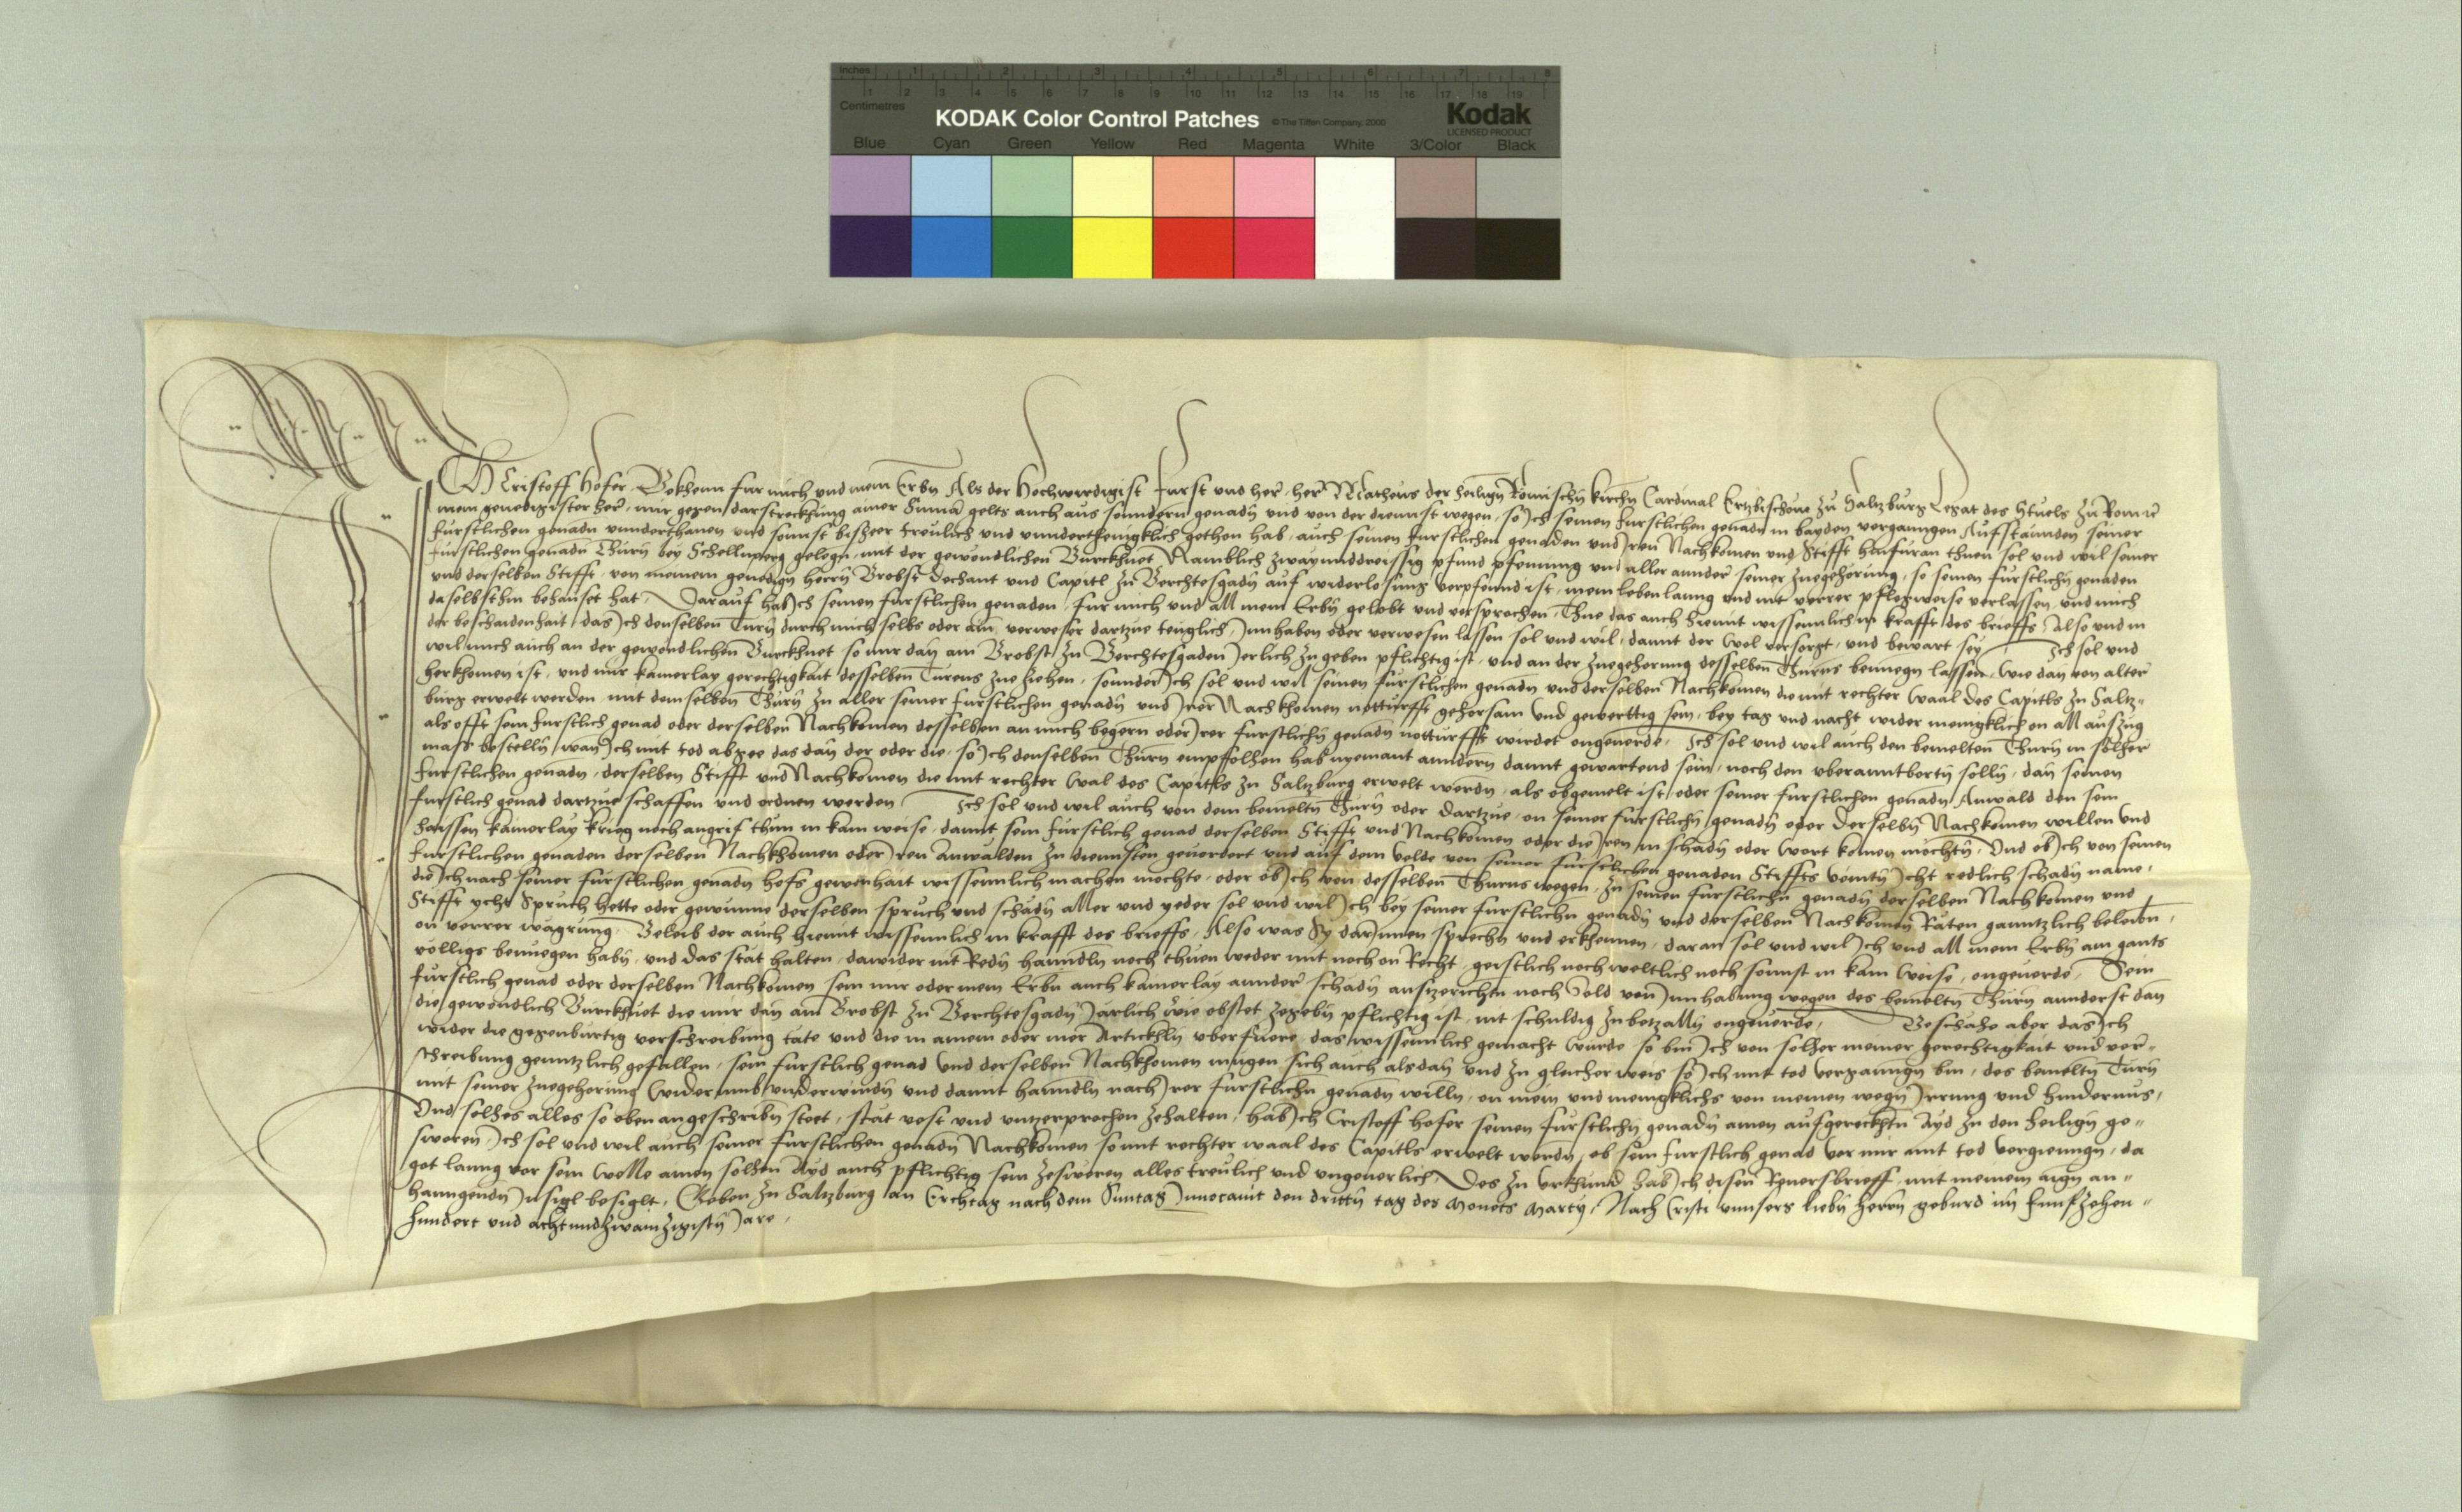 Inches 1 2 3 4 5 6 7 8
1 2 3 4 5 6 7 8 9 10 11 12 13 14 15 16 17 18 19
Centimetres
KODAK Color Control Patches © The Tiffen Company, 2000 Kodak
LICENSED PRODUCT
Blue Cyan Green Yellow Red Magenta White 3/Color Black
Ich Cristoff Hofer Bekhenn fur mich und mein Erbn Als der Hochwirdigist Furst und her, her Matheus der heiligen Romischn kirchn Cardinal Ertzbischove zu Saltzburg Legat des Stuels zu Rom etc
mein genedigister her, mir gegen darstreckhung ainer Suma gelts auch aus sonndern genadn und von der diennst wegen, so Ich seinen furstlichen genadn in bayden vergangen Aufstannden seiner
furstlichen genadn unnderthanen und sonnst bisheer treulich und unnderthenigklich gethon hab, auch seinen furstlichen genaden und Iren Nachkomen und Stifft hinfuran thuen sol und wil seiner
furstlichen genadn Thurn bey Schellnperg gelegn, mit der gewondlichen Burckhuet Namblich zwayunddreissig pfund pfenning und aller annder seiner zuegehorung, so seinen furstlichn genaden
und derselben Stifft, von meinem genedign herrn Brobst Dechant und Capitl zu Berchtesgadn auf widerlosung verpfenndt ist, mein lebenlanng und nit verrer pflegweise verlassen, und mich
daselbsthin behauset hat, Darauf hab Ich seinen furstlichen genaden, fur mich und all mein Erbn gelobt und versprochen, Thue das auch hiemit wissenntlich in krafft des brieffs, Also und in
der beschaidenhait, das Ich denselben Turn durch mich selbs oder ain verweser dartzue teuglich, Innhaben oder verwesen lassen sol und wil, damit der wol versorgt, und bewart sey, Ich sol und
wil mich auch an der gewondlichen Burckhuet so mir dan ain Brobst zu Berchtesgaden Ierlich zu geben pflichtig ist, und an der zuegehorung desselben Thurns benuegn lassen, wie dan von alter
herkhomen ist, und mir kainerlay gerechtigkait desselben Turens zue ziehen, sonnder Ich sol und wil seinen furstlichen genadn und derselben Nachkomen die mit rechter Waal des Capitls zu Saltz-
burg erwelt werden, mit demselben Thurn zu aller seiner furstlichen genadn und Irer Nachkhomen notturfft gehorsam und gewerttig sein, bey tag und nacht wider menigklichen all auszug
als offt sein furstlich genad oder derselben Nachkomen desselben an mich begern oder Irer furstlichn genadn notturfft wirdet ongeverde, Ich sol und wil auch den bemelten Thurn in solher
mass bestelln, wan Ich mit tod abgee das dan der oder die, so Ich denselben Thurn empfolhen hab nyemant anndern damit gewarttend sein, noch den uberanntborttn solln, dan seinen
furstlichen genadn, derselben Stifft und Nachkomen die mit rechter Wal des Capitls zu Saltzburg erwelt werdn, als obgemelt ist, oder seiner furstlichen genadn Anwald den sein
furstlich genad dartzue schaffen und ordnen werden, Ich sol und wil auch von dem bemeltn Thurn oder dartzue, on seiner furstlichn genadn oder derselbn Nachkomen willen und
haissen kainerlay krieg noch angrif thun in kain weise, damit sein furstlich genad derselben Stifft und Nachkomen oder die Iren in schadn oder wort komen mochtn, Und ob Ich von seinen
furstlichen genaden derselben Nachkhomen oder Iren Anwalden zu diennsten gevordert und auf dem velde von seiner furstlichen genaden Stiffts veintn Icht redlich schadn name,
die Ich nach seiner furstlichen genadn hofs gewonhait wissenntlich machen mochte, oder ob Ich von desselben Thurns wegen, zu seinen furstlichn genadn derselben Nachkomen und
Stifft ycht Spruch hette oder gewunne derselben spruch und schadn aller und yeder sol und wil Ich bey seiner furstlichn genadn und derselben Nachkomen Räten ganntzlich beleibn,
on verrer wägrung, Beleib der auch hiemit wissenntlich in krafft des brieffs, Also was Sy darinnen sprechn und erkhennen, daran sol und wil Ich und all mein Erbn ain gants
volligs benuegen habn, und das stät halten, dawider nit Redn hanndln noch thuen weder mit noch on Recht, geistlich noch weltlich noch sonnst in kain Weise, ongeverde, Sein
furstlich genad oder derselben Nachkomen sein mir oder mein Erbn auch kainerlay annder schadn ausszerichtn noch Sold von Innhabung wegen des bemeltn Thurn annderst dan
die gewondlich Burckhuet die mir dan ain Brobst zu Berchtesgadn Järlich wie obstet zegebn pflichtig ist, nit schuldig zubetzalln ongeverde, Beschähe aber das Ich
wider die gegenburtig verschreibung täte und die in ainem oder mer Artickhln uberfuere, das wissenntlich gemacht wurde so bin Ich von solher meiner gerechtigkait und ver-
schreibung genntzlich gefallen, sein furstlich genad und derselben Nachkhomen mugen sich auch alsdan und zu gleicher weis so Ich mit tod verganngn bin, des bemeltn Turn
mit seiner zuegehorung widerumb underwindn und damit hanndln nach Irer furstlichn genadn willn, on mein und menigklichs von meinen wegn Irrung und hindernus,
Und solhes alles so oben angeschribn steet, stät vest und untzerprochen zehalten, hab Ich Cristoff Hofer seinen furstlichn genadn ainen aufgerecktn Ayd zu den heilign ge-
sworen, Ich sol und wil auch seiner furstlichen genadn Nachkomen so mit rechter waal des Capitls erwelt werdn, ob sein furstlich genad vor mir mit tod vergienngn, da
got lanng vor sein welle ainen solhen Ayd auch pflichtig sein zesweren alles treulich und ungeverlich, Des zu Urkhund hab Ich disen Reversbrieff, mit meinem aign an-
hanngendn Insigl besiglt, Geben zu Saltzburg an Erchtag nach dem Suntag Invocavit den drittn tag des monets Marty, Nach Cristi unnsers liebn herrn geburd im funfzehen-
hundert und achtundzwaintzigistn Jare,